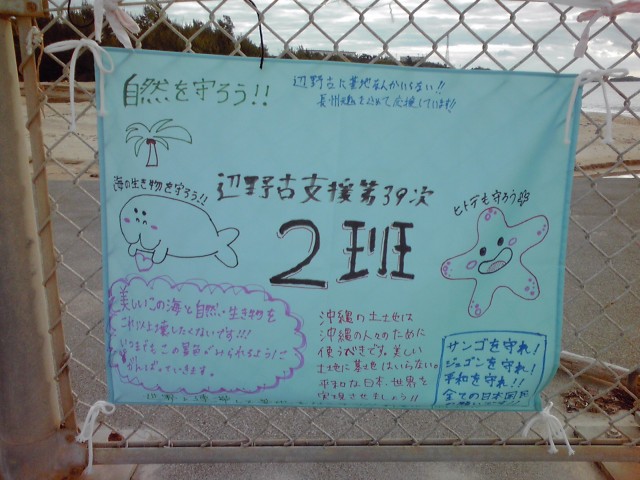 自然を守ろう!!
辺野古に基地なんかいらない!!
海の生き物を守ろう!!
辺野古支援第39次
2班
ヒトデも守ろう
美しいこの海と自然・生き物を
これ以上壊したくないです!!!
いつまでもこの景色がみられるように
がんばっていきます。
沖縄の土地は
沖縄の人々のために
使うべきです。美しい
土地に基地はいらない。
平和な日本、世界を
実現させましょう!!
サンゴを守れ!
ジュゴンを守れ!
平和を守れ!!
全ての日本国民